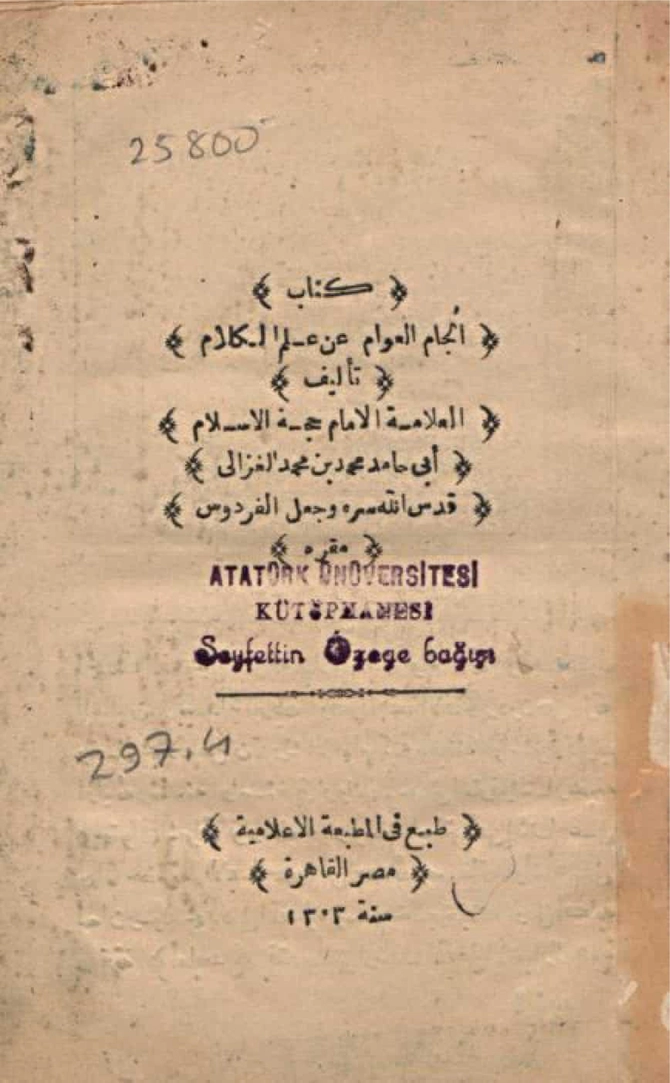 25800
﴿ كتاب ﴾
﴿ الجام العوام عن علم الكلام ﴾
﴿ تأليف ﴾
﴿ العلامة الامام حجة الاسلام ﴾
﴿ أبى حامد محمد بن محمد الغزالى ﴾
﴿ قدس الله سره وجعل الفردوس ﴾
﴿ مقره ﴾
ATATÜRK ÜNÜVERSİTESİ
KÜTÜPHANESİ
Seyfettin Özege bağışı
297.4
﴿ طبع فى المطبعة الاعلامية ﴾
﴿ مصر القاهرة ﴾
سنة ١٣٠٣